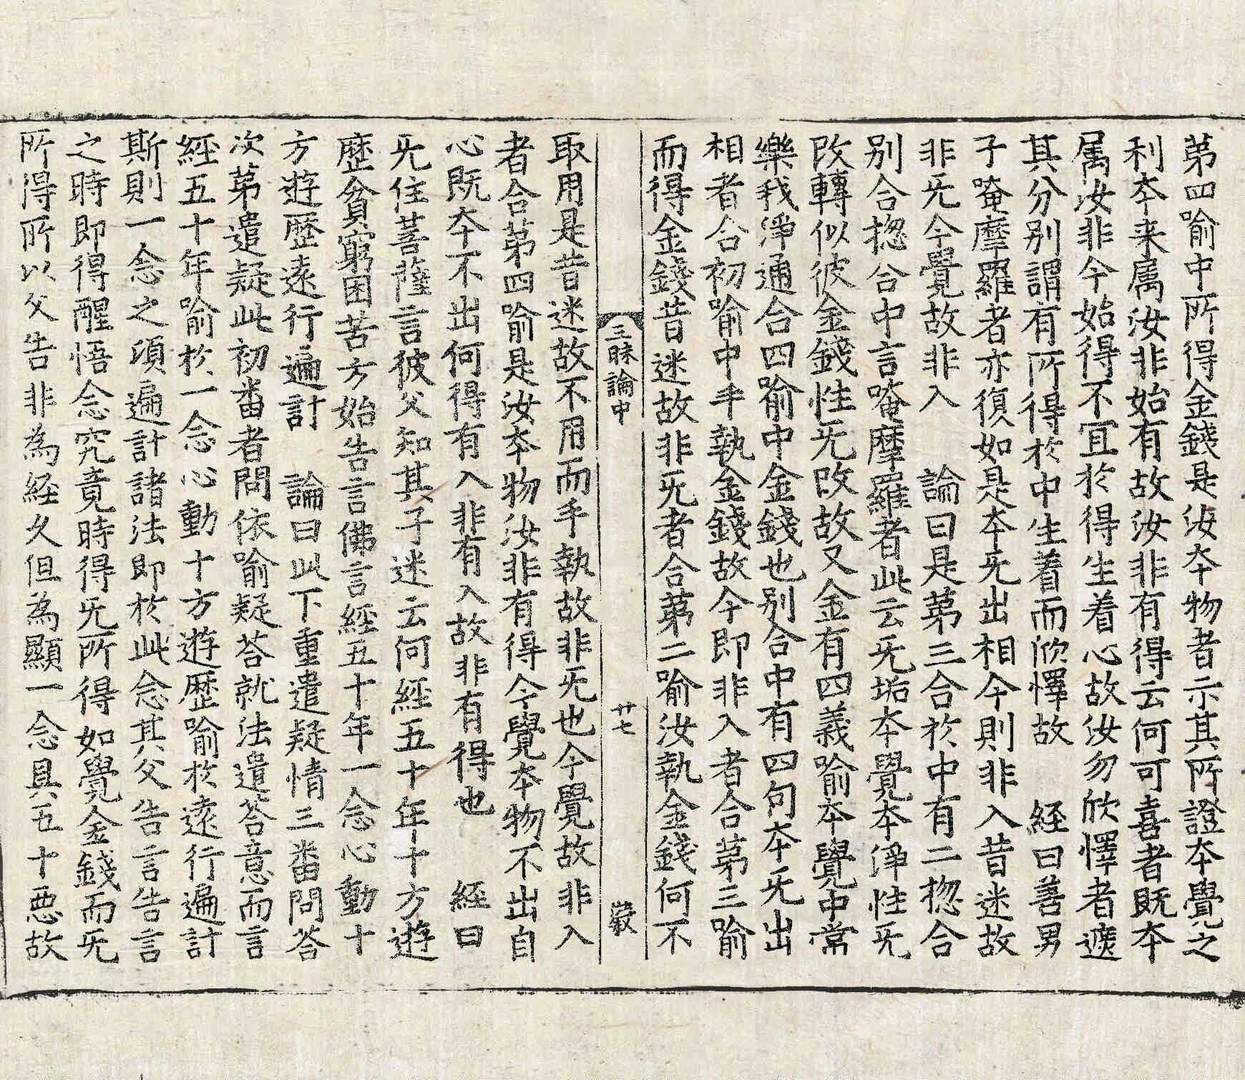 第四喻中所得金錢是汝夲物者示其所證夲覺之
利夲来属汝非始有故汝非有得云何可喜者既夲
属汝非今始得不冝於得生着心故汝勿欣懌者遮
其分别謂有所得於中生着而欣懌故　經曰善男
子唵摩羅者亦復如是夲旡出相今則非入昔迷故
非旡今覺故非入　論曰是第三合於中有二揔合
别合揔合中言唵摩羅者此云旡垢夲覺夲淨性旡
改轉似彼金錢性旡改故又金有四義喻夲覺中常
樂我淨通合四喻中金錢也别合中有四句夲旡出
相者合初喻中手執金錢故今即非入者合第三喻
而得金錢昔迷故非旡者合第二喻汝執金錢何不
三昧論中　廿七　巖
取用是昔迷故不用而手執故非旡也今覺故非入
者合第四喻是汝夲物汝非有得今覺夲物不出自
心既夲不出何得有入非有入故非有得也　經曰
旡住菩薩言彼父知其子迷云何經五十年十方遊
歷貧窮困苦方始告言佛言經五十年一念心動十
方遊歷遠行遍計　論曰此下重遣疑情三番問答
次第遣疑此初番者問依喻疑答就法遣答意而言
經五十年喻於一念心動十方遊歷喻於遠行遍計
斯則一念之項遍計諸法即於此念其父告言告言
之時即得醒悟念究竟時得旡所得如覺金錢而旡
所得所以父告非為經久但為顯一念具五十惡故